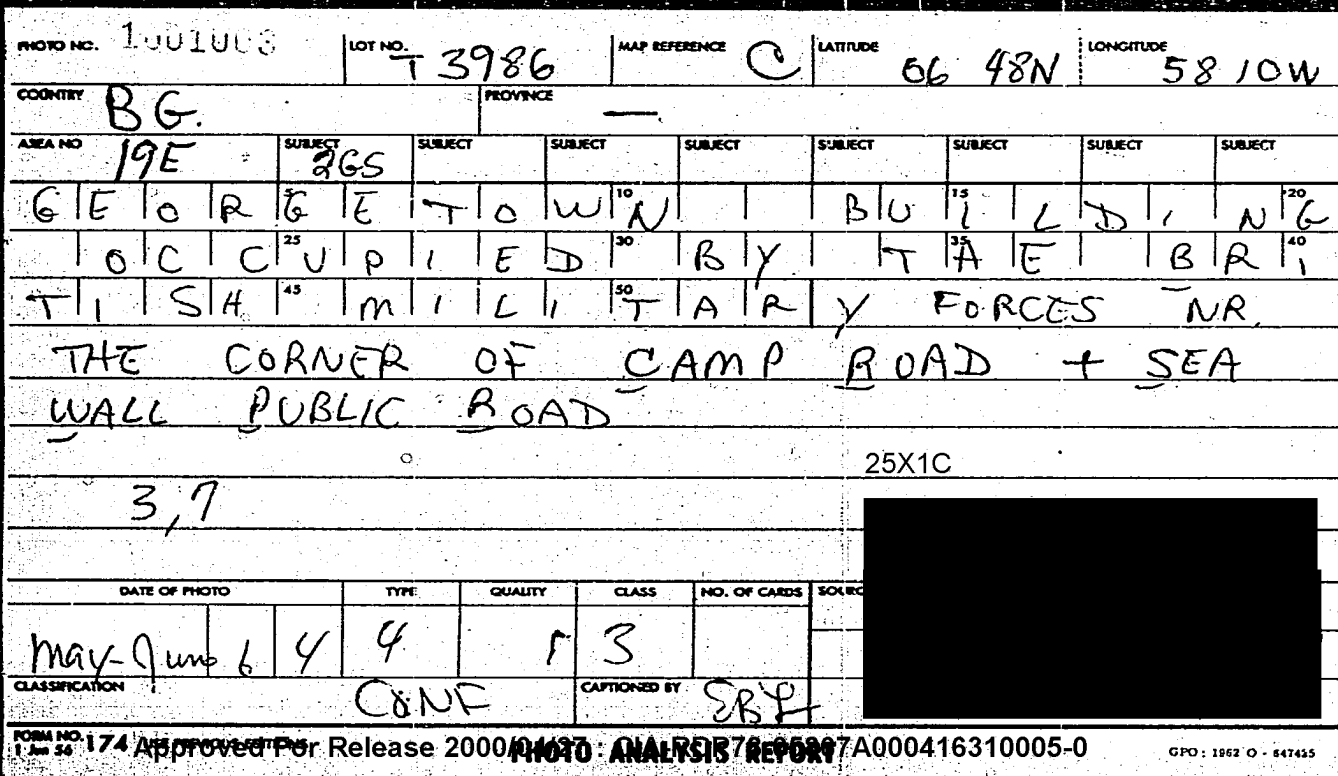 PHOTO NO. 1001003 LOT NO. T 3986 MAP REFERENCE C LATITUDE 06 48N LONGITUDE 58 10W
COUNTRY BG. PROVINCE —
AREA NO 19E SUBJECT 2GS SUBJECT SUBJECT SUBJECT SUBJECT SUBJECT SUBJECT SUBJECT
GEORGETOWN BUILDING 5 10 15 20
OCCUPIED BY TAE BRI 25 30 35 40
TISH MILITARY FORCES NR. 45 50
THE CORNER OF CAMP ROAD + SEA
WALL PUBLIC ROAD
25X1C
3,7
DATE OF PHOTO TYPE QUALITY CLASS NO. OF CARDS SOURC
May-June 64 4 1 3
CLASSIFICATION CONF CAPTIONED BY
FORM NO. 174 1 Jun 56 Approved For Release 2000/04/27 : CIA-RDP78-A000416310005-0 GPO: 1962 O - 647435
PHOTO ANALYSIS REPORT